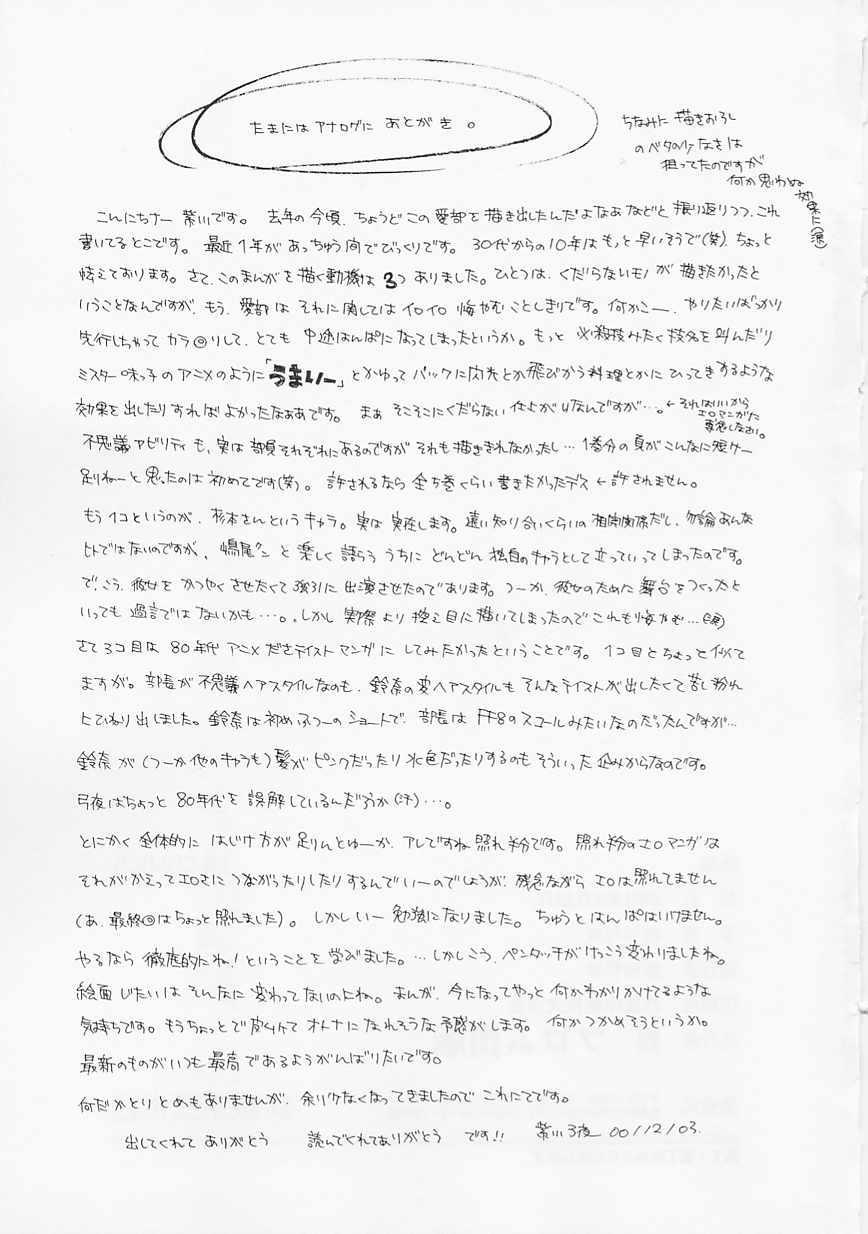 たまにはアナログに あとがき。
ちなみに 描きおろし
のベタのムダなさは
狙ってたのですが
何か思わぬ
効果に(涙)
こんにちナー 紫川です。 去年の今頃、ちょうどこの愛部を描き出したんだよなあなどと振り返りつつ、これ
書いてるとこです。 最近1年があっちゅう間でびっくりです。 30代からの10年はもっと早いそうで(笑)、ちょっと
怯えております。さて、このまんがを描く動機は3つありました。ひとつは、くだらないモノが描きたかったと
いうことなんですが、もう、愛部はそれに関してはイロイロ悔やむことしきりです。何かこー、やりたいばっかり
先行しちゃってカラ回りして、とても中途はんぱになってしまったというか。もっと必殺技みたく技名を叫んだり
ミスター味っ子のアニメのように「うまいー」とかゆってバックに閃光とか飛びかう料理とかにひってきするような
効果を出したりすればよかったなぁあです。 まぁそこそこにくだらない仕上がりなんですが…。←それはいいから
エロマンガだ
妄想しなさい。
不思議アビリティも、実は部員それぞれにあるのですがそれも描ききれなかったし…1巻分の頁がこんなに短けー
足りねーと思ったのは初めてです(笑)。 許されるなら全5巻くらい書きたかったデス ← 許されません。
もう1コというのが、杉本さんというキャラ。実は実在します。遠い知り合いくらいの相関関係だし、勿論あんな
ヒトではないのですが、鳴尾クンと楽しく語らううちにどんどん独自のキャラとして立っていってしまったのです。
で、こう、彼女をかつやくさせたくて強引に出演させたのであります。つーか、彼女のために舞台をつくったと
いっても過言ではないかも…。しかし実際より控え目に描いてしまったのでこれも悔やむ…(涙)
さて3コ目は80年代アニメださテイストマンガにしてみたかったということです。1コ目とちょっと似て
ますが。部長が不思議ヘアスタイルなのも、鈴奈の変ヘアスタイルもそんなテイストが出したくて苦し紛れ
にひねり出しました。鈴奈は初めふつーのショートで、部長はFF8のスコールみたいなのだったんですが…
鈴奈が(つーか他のキャラも)髪がピンクだったり水色だったりするのもそういった企みからなのです。
弓夜はちょっと80年代を誤解しているんだろうか(汗)…。
とにかく全体的にはじけ方が足りんとゆーか、アレですね照れ半分です。照れ半分のエロマンガは
それがかえってエロさにつながったりしたりするんでいーのでしょうが、残念ながらエロは照れてません
(あ、最終回はちょっと照れました)。 しかしいー勉強になりました。ちゅうとはんぱはいけません。
やるなら徹底的にね!ということを学びました。…しかしこう、ペンタッチがけっこう変わりましたね。
絵画じたいはそんなに変わってないのにね。まんが、今になってやっと何かわかりかけてるような
気持ちです。もうちょっとで向けてオトナになれそうな予感がします。 何かつかめそうというか。
最新のものがいつも最高であるようがんばりたいです。
何だかとりとめもありませんが、余りなくなってきましたのでこれにてです。
出してくれてありがとう 読んでくれてありがとう です!! 紫川弓夜 00/12/03.